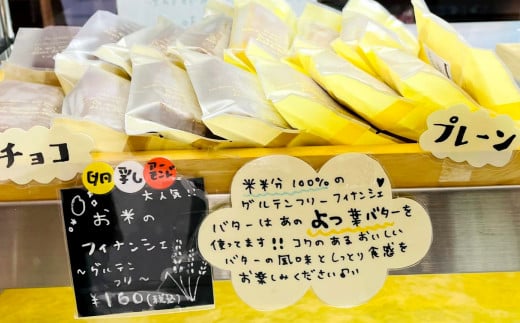 チョコ
プレーン
卵 乳 アーモンド
大人気!!
お米の
フィナンシェ
~グルテン
フリー~
¥160(税込)
米粉分100%の
グルテンフリーフィナンシェ
バターはあのよつ葉バターを
使ってます!!コクのあるおいしい
バターの風味としっとり食感を
お楽しみください♪